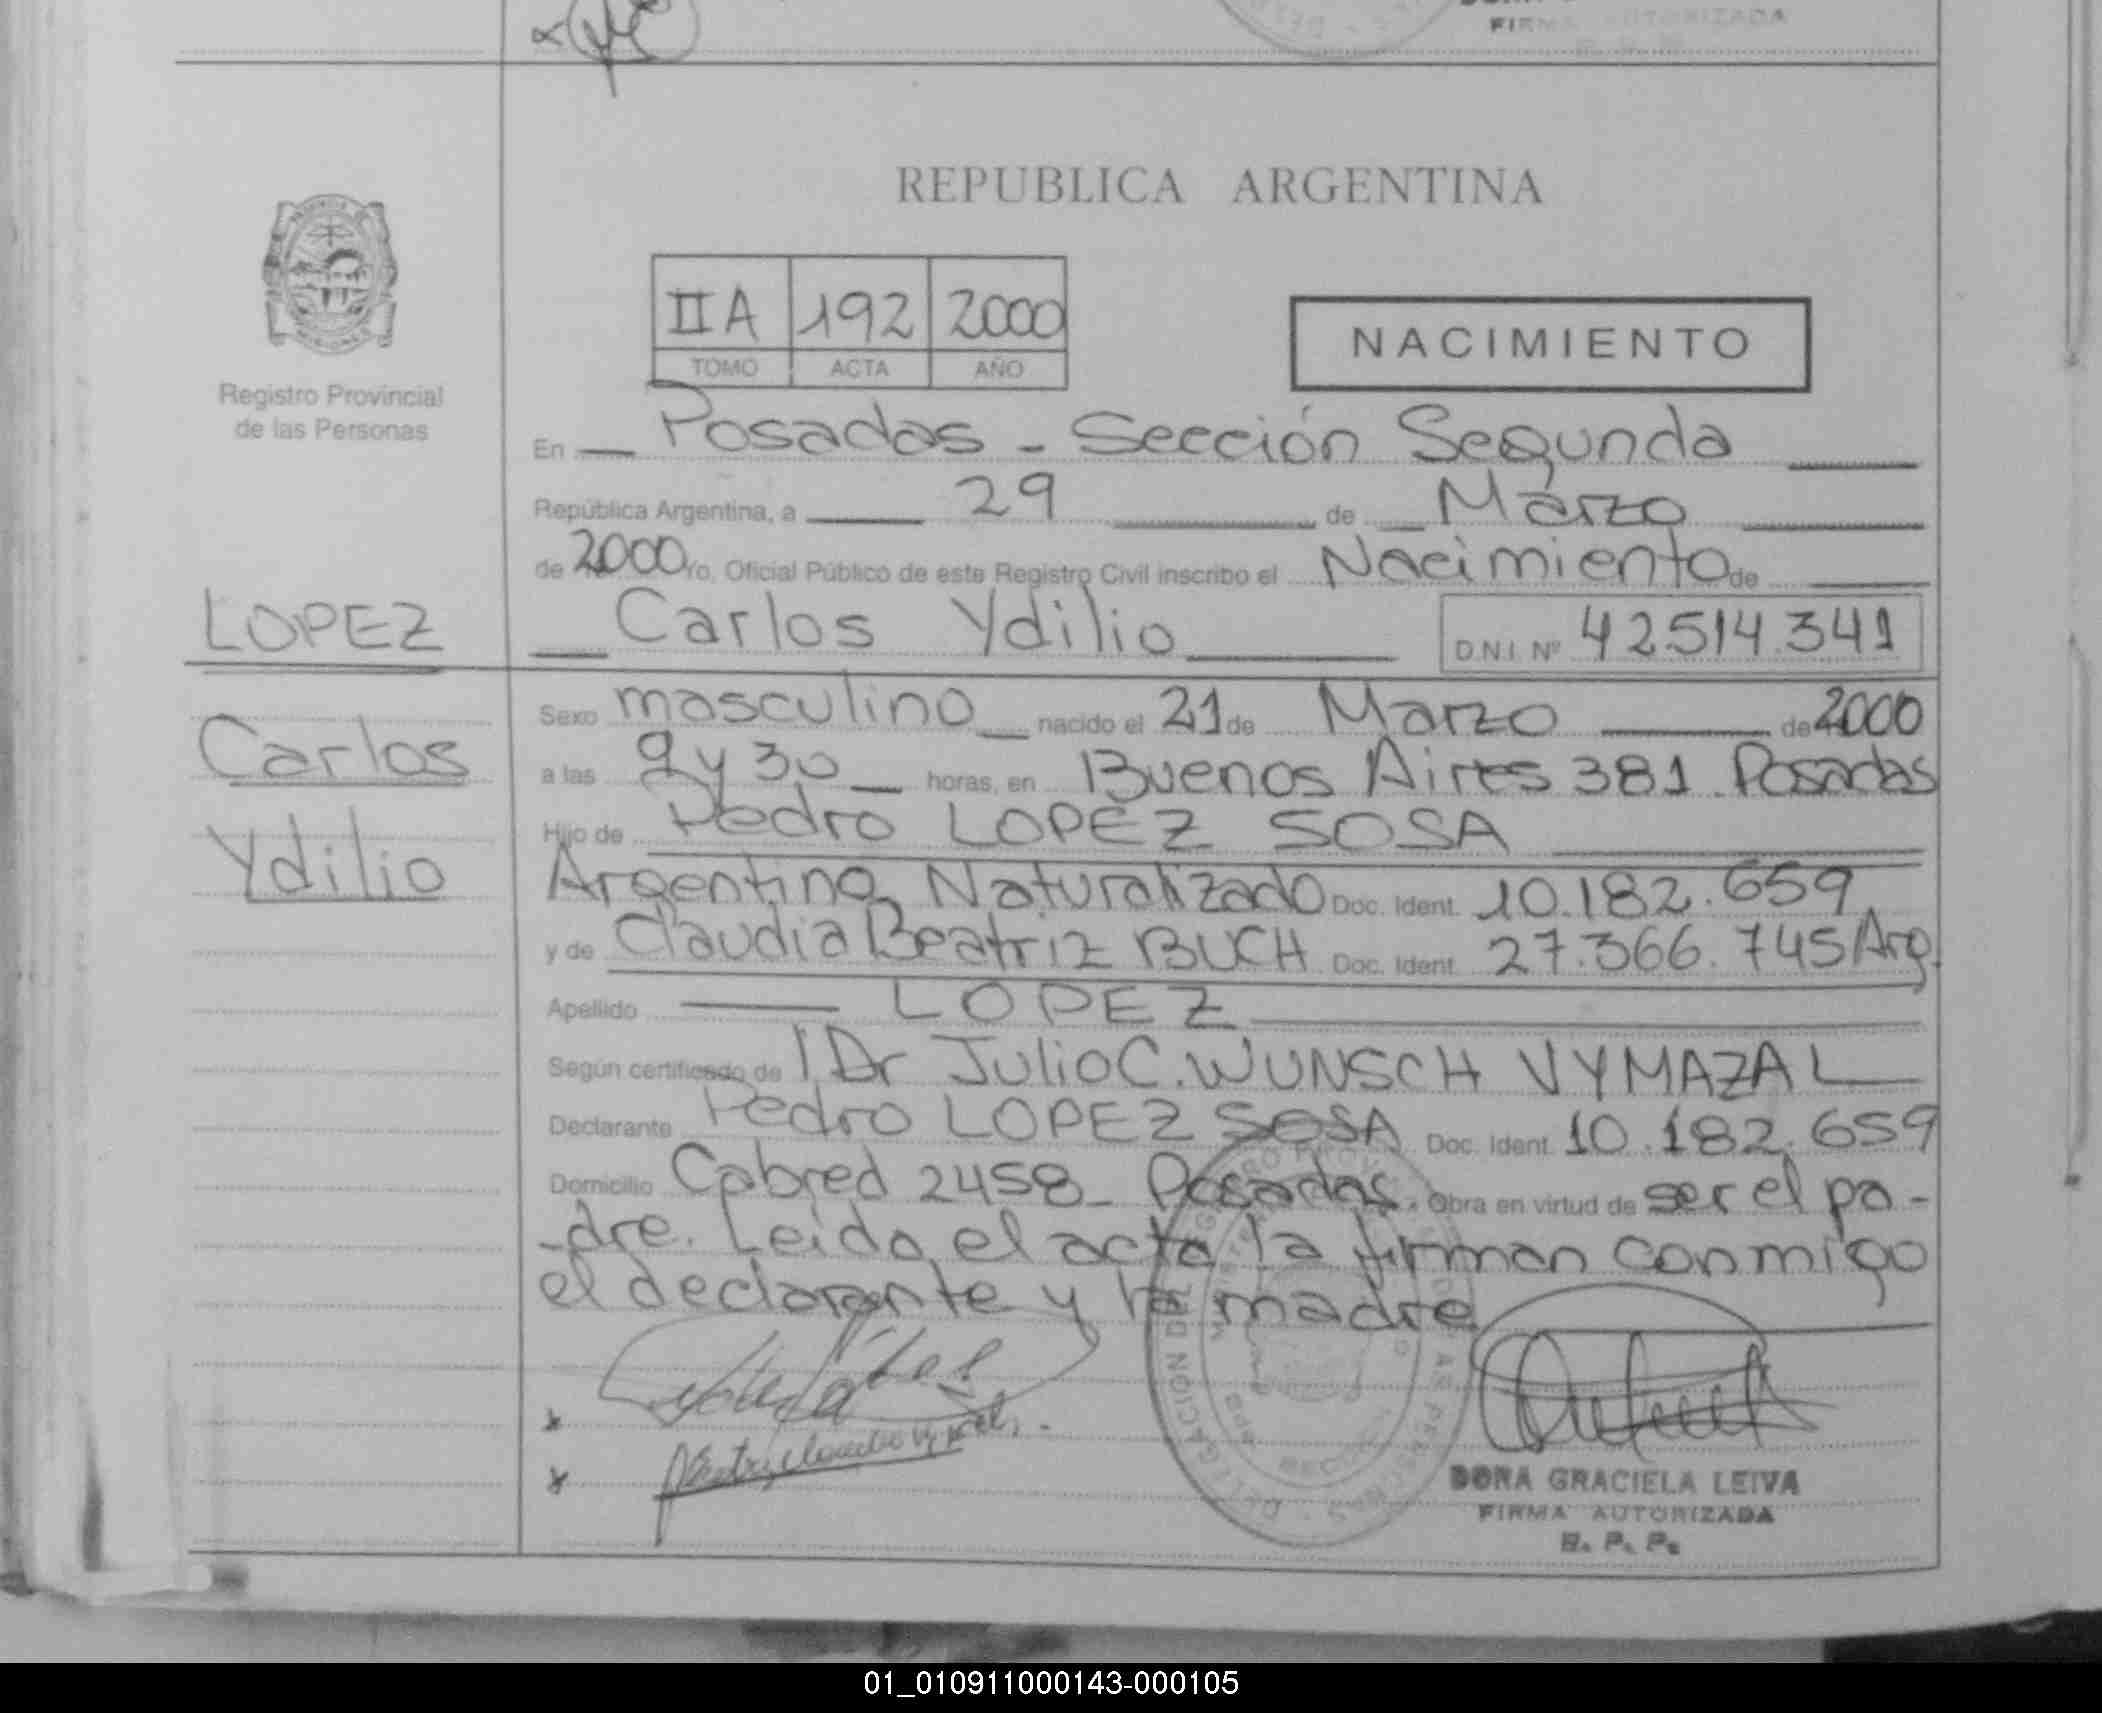 FIRMA AUTORIZADA
REPUBLICA ARGENTINA
IIA 192 2000
TOMO ACTA AÑO
NACIMIENTO
Registro Provincial
de las Personas
En Posadas - Sección Segunda
República Argentina, a 29 de Marzo
de 2000 Yo, Oficial Público de este Registro Civil inscribo el Nacimiento de
Carlos Ydilio D.N.I. Nº 42.514.341
LOPEZ
Carlos
Ydilio
Sexo masculino nacido el 21 de Marzo de 2000
a las 9 y 30 horas, en Buenos Aires 381 Posadas
Hijo de Pedro LOPEZ SOSA
Argentino Naturalizado Doc. Ident. 10.182.659
y de Claudia Beatriz BUCH Doc. Ident. 27.366.745 Arg.
Apellido LOPEZ
Según certificado de l Dr Julio C. WUNSCH VYMAZAL
Declarante Pedro LOPEZ SOSA Doc. Ident. 10.182.659
Domicilio Cabred 2458 - Posadas. Obra en virtud de ser el pa-
-dre. Leida el acta la firman conmigo
el declarante y la madre
DELEGACION DEL
DORA GRACIELA LEIVA
FIRMA AUTORIZADA
R. P. P.
01_010911000143-000105